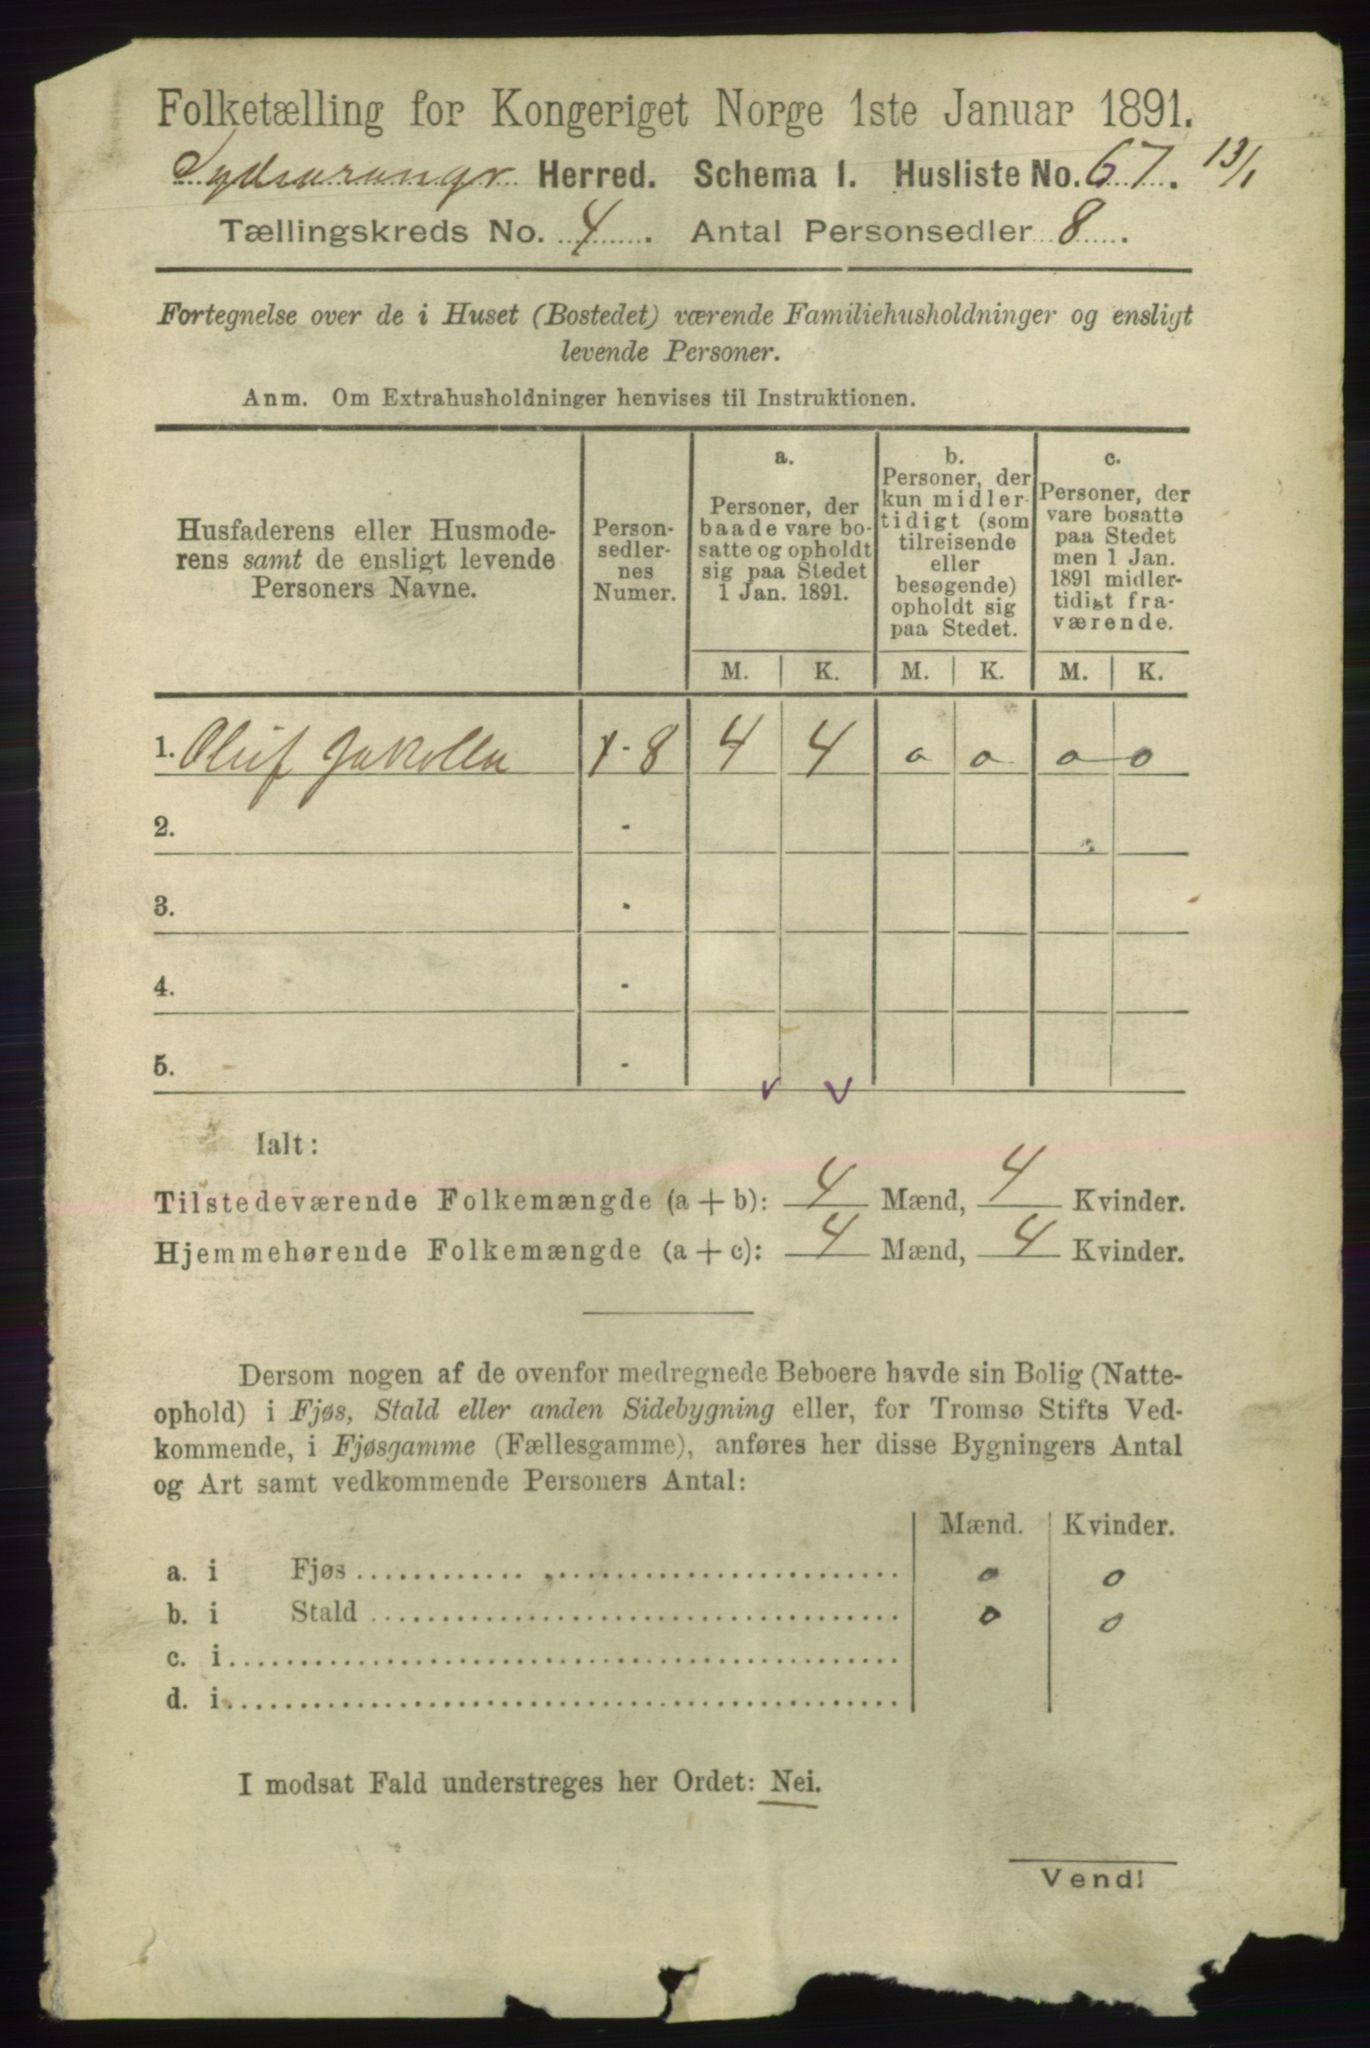 Folketælling for Kongeriget Norge 1ste Januar 1891.
Sydvaranger Herred. Schema 1. Husliste No. 67. 13/1
Tællingskreds No. 4. Antal Personsedler 8.
Fortegnelse over de i Huset (Bostedet) værende Familiehusholdninger og ensligt
levende Personer.
Anm. Om Extrahusholdninger henvises til Instruktionen.
Husfaderens eller Husmode-
rens samt de ensligt levende
Personers Navne.
Person-
sedler-
nes
Numer.
a.
Personer, der
baade vare bo-
satte og opholdt
sig paa Stedet
1 Jan. 1891.
b.
Personer, der
kun midler-
tidigt (som
tilreisende
eller
besøgende)
opholdt sig
paa Stedet.
c.
Personer, der
vare bosatte
paa Stedet
men 1 Jan.
1891 midler-
tidigt fra-
værende.
M. K. M. K. M. K.
1. Oluf 1-8 4 4 0 0 0 0
2. -
3. -
4. -
5. -
Ialt:
Tilstedeværende Folkemængde (a + b): 4 Mænd, 4 Kvinder.
Hjemmehørende Folkemængde (a + c): 4 Mænd, 4 Kvinder.
Dersom nogen af de ovenfor medregnede Beboere havde sin Bolig (Natte-
ophold) i Fjøs, Stald eller anden Sidebygning eller, for Tromsø Stifts Ved-
kommende, i Fjøsgamme (Fællesgamme), anføres her disse Bygningers Antal
og Art samt vedkommende Personers Antal:
Mænd. Kvinder.
a. i Fjøs 0 0
b. i Stald 0 0
c. i
d. i
I modsat Fald understreges her Ordet: Nei.
Vend!